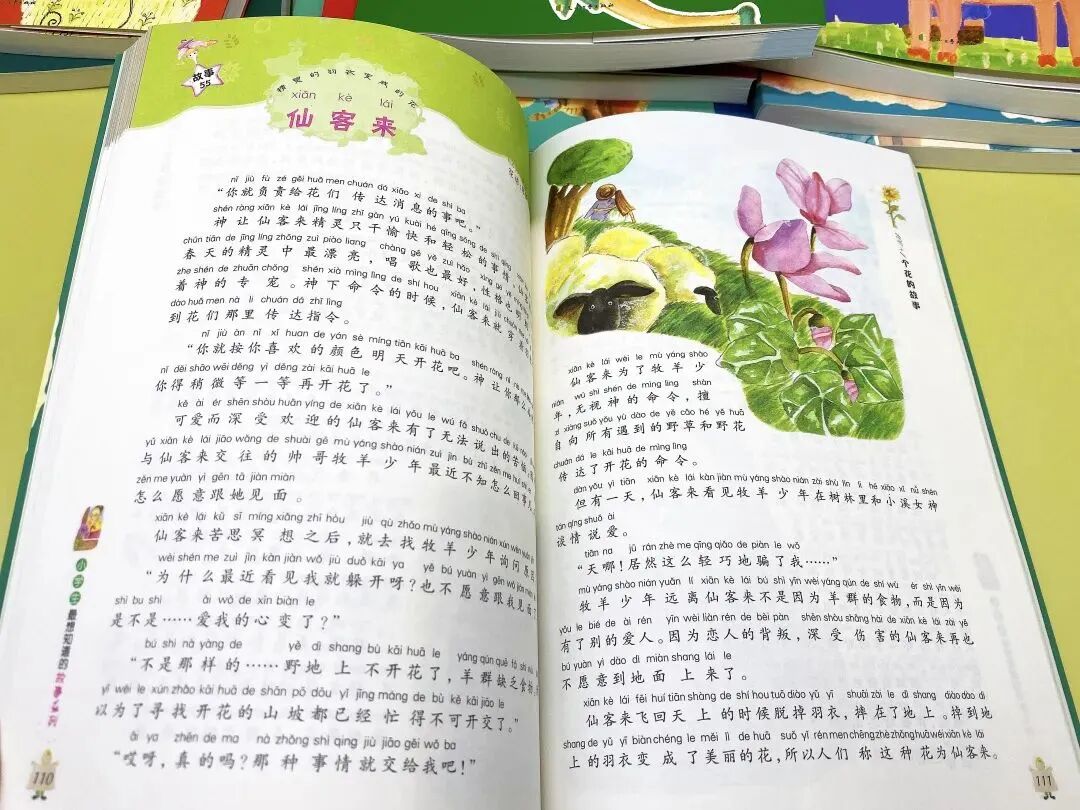 故事
55
精灵的羽衣变成的花
xiān kè lái
仙客来
nǐ jiù fù zé gěi huā men chuán dá xiāo xi de shì ba
“你就负责给花们 传达消息的事吧。”
shén ràng xiān kè lái jīng líng zhǐ gàn yú kuài hé qīng sōng de shì qing
神让仙客来精灵只干愉快和轻松的事情。
chūn tiān de jīng líng zhōng zuì piào liang chàng gē yě zuì hǎo xìng gé yě
春天的精灵中最漂亮，唱歌也最好，性格也
zhe shén de zhuān chǒng shén xià mìng lìng de shí hou xiān kè lái jiù
着神的专宠。神下命令的时候，仙客来就穿
dào huā men nà lǐ chuán dá zhǐ lìng
到花们那里传达指令。
nǐ jiù àn nǐ xǐ huan de yán sè míng tiān kāi huā ba shén ràng nǐ
“你就按你喜欢的颜色明天开花吧。神让你那么
nǐ děi shāo wēi děng yi děng zài kāi huā le
你得稍微等一等再开花了。”
kě ài ér shēn shòu huān yíng de xiān kè lái yǒu le wú fǎ shuō chū de kǔ nǎo
可爱而深受欢迎的仙客来有了无法说出的苦恼，
yǔ xiān kè lái jiāo wǎng de shuài gē mù yáng shào nián zuì jìn bù zhī zěn me huí shì
与仙客来交往的帅哥牧羊少年最近不知怎么回事，
zěn me yuàn yì gēn tā jiàn miàn
怎么愿意跟她见面。
xiān kè lái kǔ sī míng xiǎng zhī hòu jiù qù zhǎo mù yáng shào nián xún wèn yuán
仙客来苦思冥想之后，就去找牧羊少年询问原
wèi shén me zuì jìn kàn jiàn wǒ jiù duǒ kāi ya yě bú yuàn yì gēn wǒ jiàn miàn
“为什么最近看见我就躲开呀？也不愿意跟我见面
shì bu shì ài wǒ de xīn biàn le
是不是……爱我的心变了？”
bú shì nà yàng de yě dì shang bù kāi huā le yáng qún quē fá shí wù
“不是那样的……野地上不开花了，羊群缺乏食物，
yǐ wèi le xún zhǎo kāi huā de shān pō dōu yǐ jīng máng de bù kě kāi jiāo le
以为了寻找开花的山坡都已经忙得不可开交了。”
āi ya zhēn de ma nà zhǒng shì qing jiù jiāo gěi wǒ ba
“哎呀，真的吗？那种事情就交给我吧！”
小学生最想知道的故事系列
110
个花的故事
xiān kè lái wèi le mù yáng shào
仙客来为了牧羊少
nián wú shì shén de mìng lìng shàn
年，无视神的命令，擅
zì xiàng suǒ yǒu yù dào de yě cǎo hé yě huā
自向所有遇到的野草和野花
chuán dá le kāi huā de mìng lìng
传达了开花的命令。
dàn yǒu yì tiān xiān kè lái kàn jiàn mù yáng shào nián zài shù lín lǐ hé xiǎo xī nǚ shén
但有一天，仙客来看见牧羊少年在树林里和小溪女神
tán qíng shuō ài
谈情说爱。
tiān na jū rán zhè me qīng qiǎo de piàn le wǒ
“天哪！居然这么轻巧地骗了我……”
mù yáng shào nián yuǎn lí xiān kè lái bú shì yīn wèi yáng qún de shí wù ér shì yīn wèi
牧羊少年远离仙客来不是因为羊群的食物，而是因为
yǒu le bié de ài rén yīn wèi liàn rén de bèi pàn shēn shòu shāng hài de xiān kè lái zài yě
有了别的爱人。因为恋人的背叛，深受伤害的仙客来再也
bú yuàn yì dào dì miàn shang lái le
不愿意到地面上来了。
xiān kè lái fēi huí tiān shàng de shí hou tuō diào yǔ yī shuāi zài le dì shang diào dào dì
仙客来飞回天上的时候脱掉羽衣，摔在了地上。掉到地
shang de yǔ yī biàn chéng le měi lì de huā suǒ yǐ rén men chēng zhè zhǒng huā wéi xiān kè lái
上的羽衣变成了美丽的花，所以人们称这种花为仙客来。
111